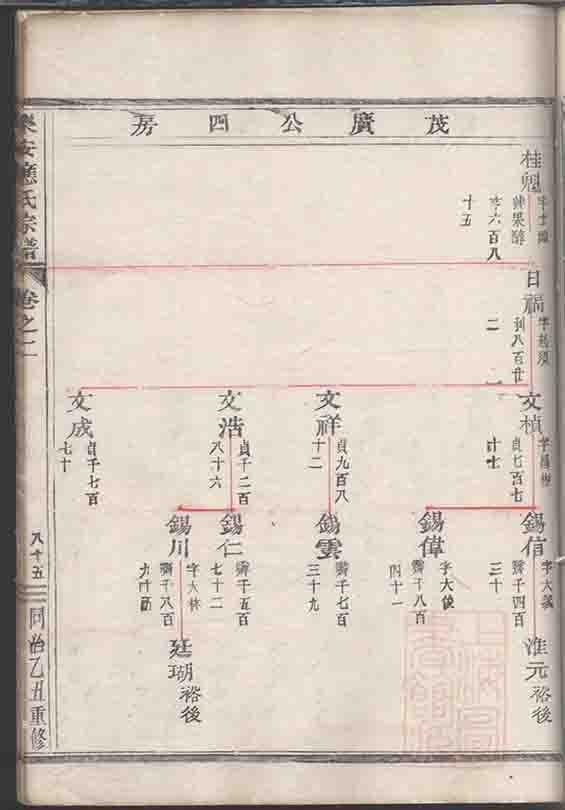 茂廣公四房
桂魁
字六百八
十五
日福
利八百廿
二
文楨
貞七百七
十七
文祥
貞九百八
十二
文浩
貞千二百
八十六
文成
貞千七百
七十
錫信
字大
霽千四百
三十
錫偉
字大俊
霽千八百
四十一
錫雲
霽千七百
三十九
錫仁
霽千五百
七十二
錫川
字大
霽千八百
九十
淮元 裕後
廷瑚 裕後
樂安應氏宗譜
卷之二
八十五
同治乙丑重修